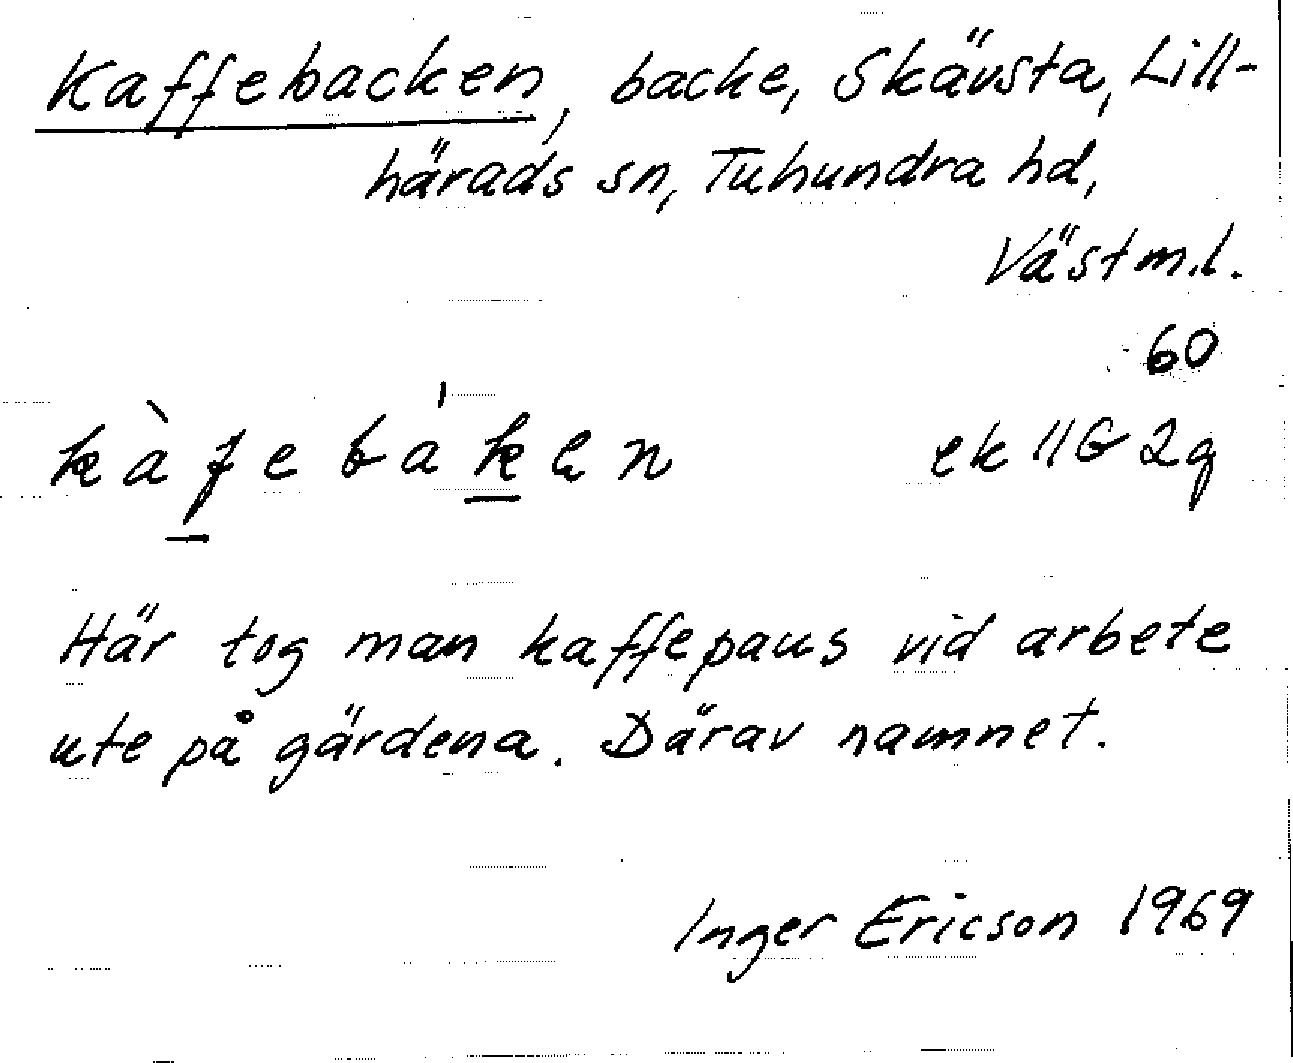 Kaffebacken, backe, Skävsta, Lill-
härads sn, Tuhundra hd,
Västm.l.
60
kàfebáken ek 11G2q
Här tog man kaffepaus vid arbete
ute på gärdena. Därav namnet.
Inger Ericson 1969